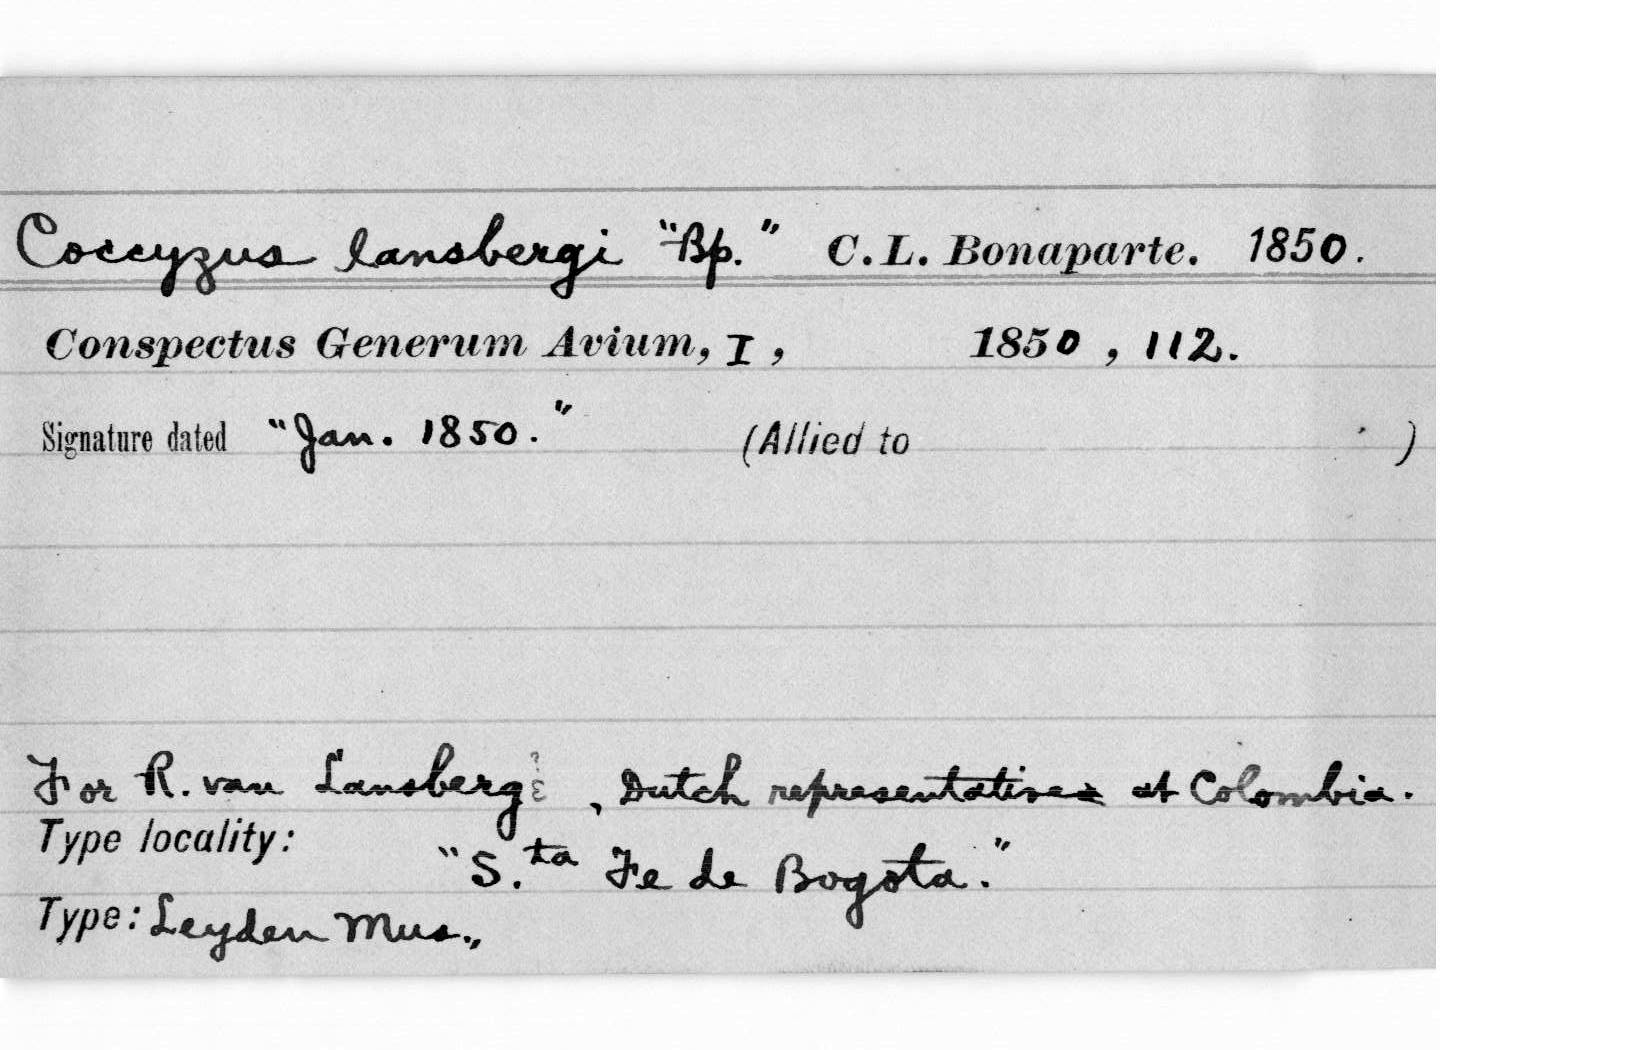 Coccyzus lansbergi "Bp." C. L. Bonaparte. 1850.
Conspectus Generum Avium, I, 1850, 112.
Signature dated "Jan. 1850." (Allied to )
For R. van Lansberg, Dutch representative at Colombia.
Type locality:
"S.ta Fe de Bogota."
Type: Leyden Mus.,